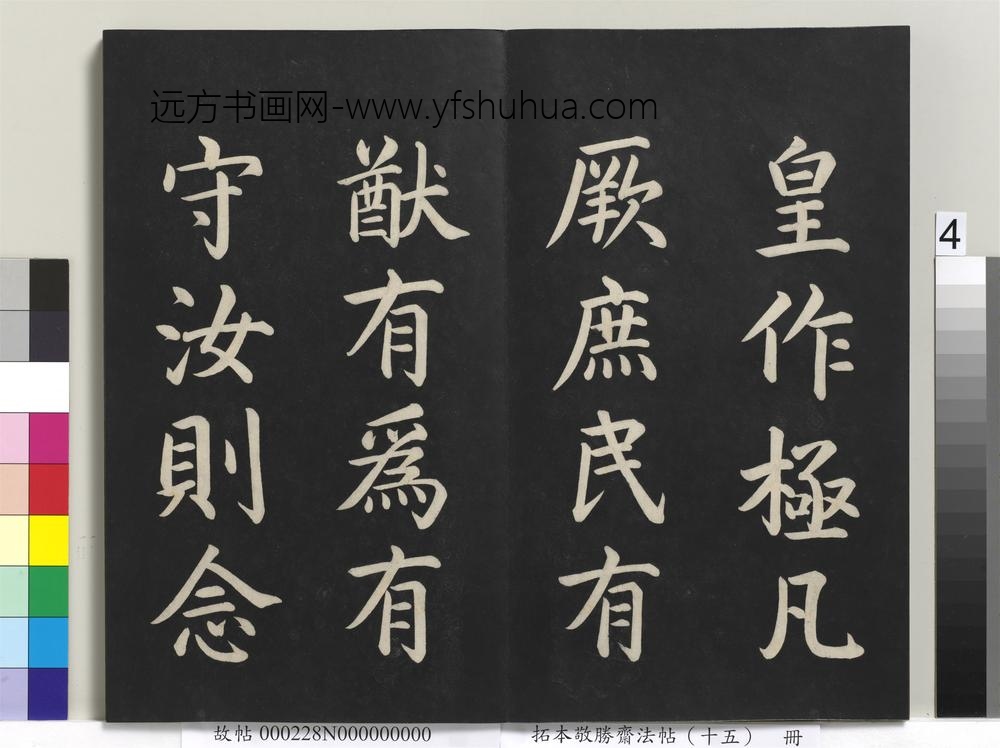 远方书画网-www.yfshuhua.com
皇作極凡
厥庶民有
猷有為有
守汝則念
4
故帖 000228N000000000
拓本敬勝齋法帖（十五） 冊